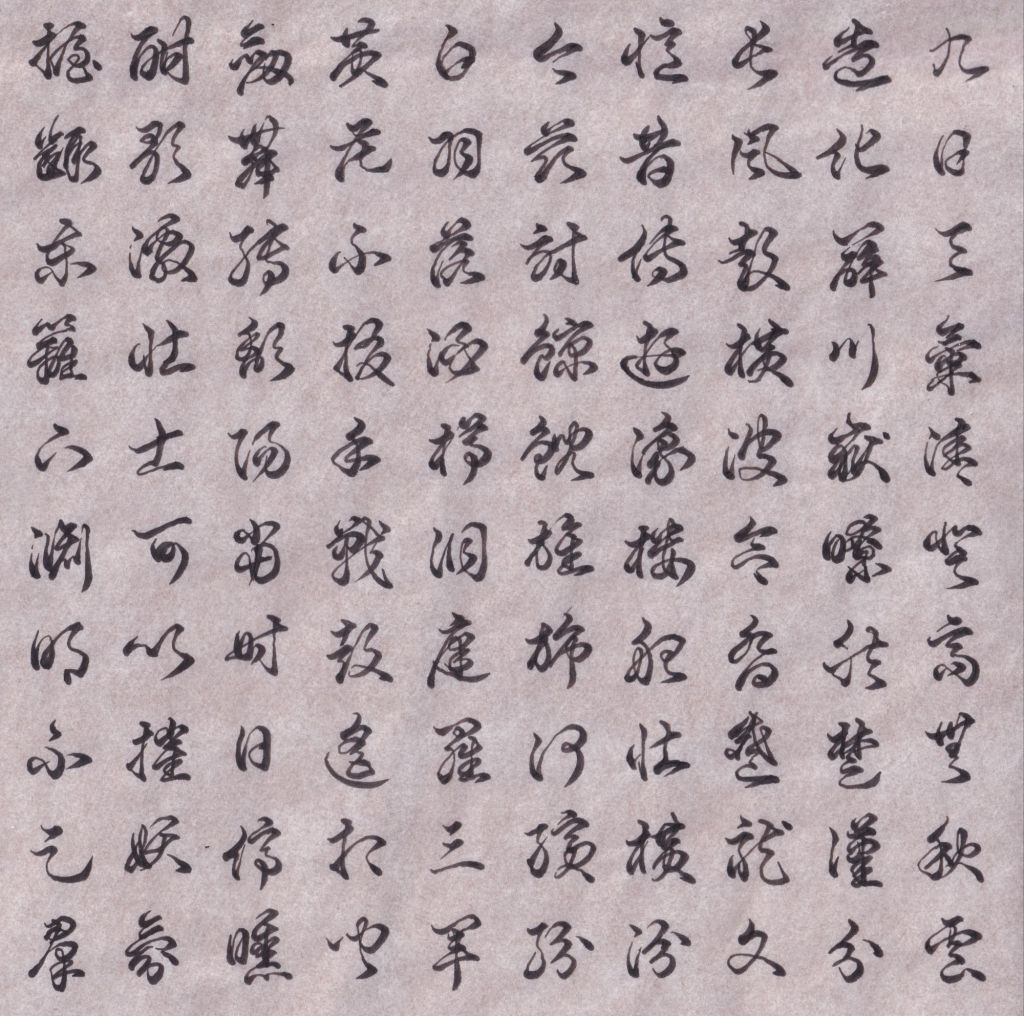 九日天氣清登高無秋雲
造化辟川嶽瞭然楚漢分
長風鼓橫波合沓蹙龍文
憶昔傳遊濠樓船壯橫汾
今茲討鯨鯢旌旆何繽紛
白羽落酒樽洞庭羅三軍
黃花不掇手戰鼓遙相聞
劍舞轉頹陽當時日停曛
酣歌激壯士可以摧妖氛
握齱東籬下淵明不足羣